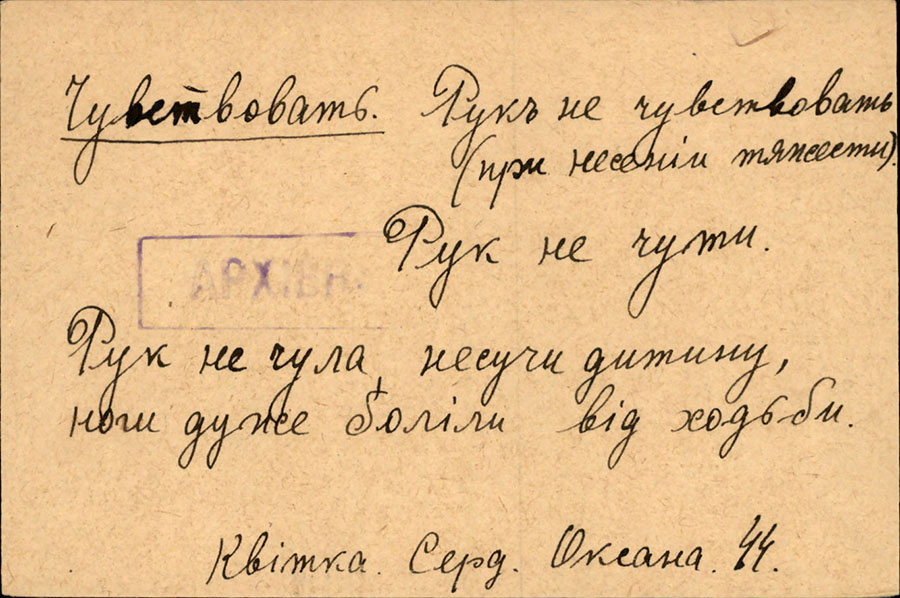 Чувствовать. Рукъ не чувствовать
(при несеніи тяжести).
Рук не чути.
АРХІВН.
Рук не чула, несучи дитину,
ноги дуже боліли від ходьби.
Квітка. Серд. Оксана. 44.